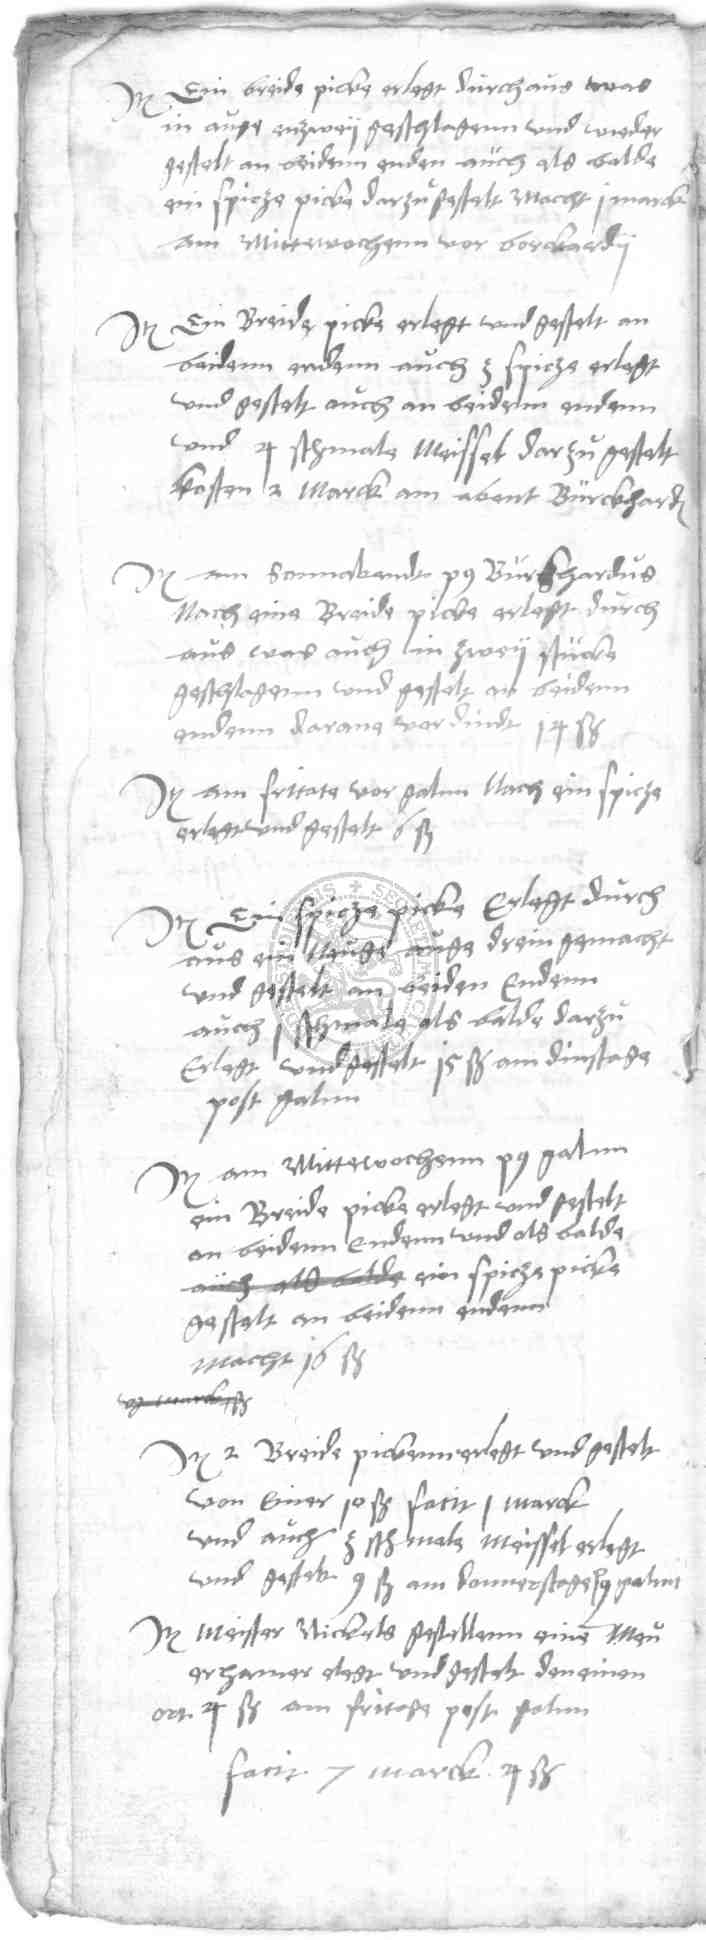 Itm Ein breide picke erlegt durchaus was
in auge enzweij geschlagenn und wieder
gestelt an beidenn enden auch als balde
ein spicze picke darzu gestelt Macht j marck
am Mittewochenn vor borckardij
Itm Ein Breide picke erlegt und gestelt an
beidenn endenn auch 3 spicze erlegt
und gestelt auch an beidenn endenn
und 4 schmale Meissel darzu gestelt
kosten 2 Marck am abent Bürckhardj
Itm am Sonnabendt p9 Bürckhardus
Nach eine Breide picke erlegt durch
aus was auch in zweij stücke
geschlagenn und gestelt an beidenn
endenn darane vordindt 14 sß
Itm am fritage vor galun Nach ein spicze
erlegt und gestelt 6 sß
Itm Ein spicze picke Erlegt durch
aus ein Neuge auge drein gemacht
und gestelt an beiden Endenn
auch j schmale als balde darzu
Erlegt und gestelt 15 sß am dinstage
post galun
Itm am Mittewochenn p9 galun
ein Breide picke erlegt und gestelt
an beidenn Endenn und als balde
auch als balde ein spicze picke
gestelt an beidenn endenn
Macht 16 sß
marck sß
Itm 2 Breide pickenn erlegt und gestelt
von Einer 10 sß facit j marck
und auch 3 schmale Meissel erlegt
und gestelt 9 sß am donnerstage p9 galun
Itm Meister Nickels gesellenn eine Meu
erhamer elegt und gestelt den einen
ort 4 sß am fritage post galun
facit 7 marck 4 sß